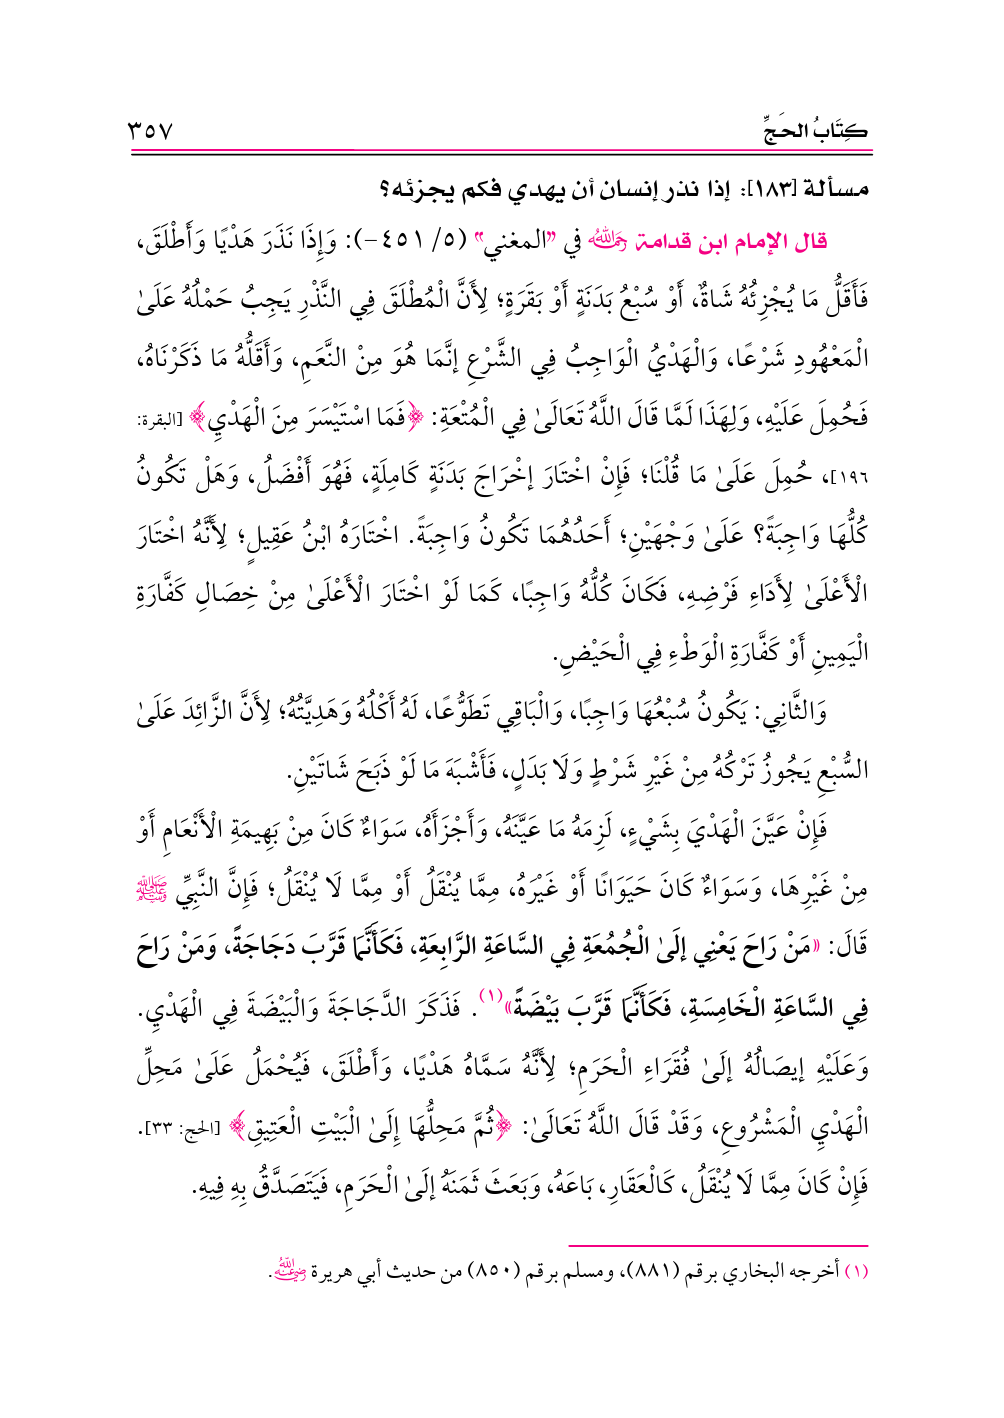 كِتَابُ الحَجِّ ٣٥٧
مسألة [١٨٣]: إذا نذر إنسان أن يهدي فكم يجزئه؟
قال الإمام ابن قدامة رحمه الله في "المغني" (٥/ ٤٥١-): وَإِذَا نَذَرَ هَدْيًا وَأَطْلَقَ،
فَأَقَلُّ مَا يُجْزِئُهُ شَاةٌ، أَوْ سُبْعُ بَدَنَةٍ أَوْ بَقَرَةٍ؛ لِأَنَّ الْمُطْلَقَ فِي النَّذْرِ يَجِبُ حَمْلُهُ عَلَىٰ
الْمَعْهُودِ شَرْعًا، وَالْهَدْيُ الْوَاجِبُ فِي الشَّرْعِ إنَّمَا هُوَ مِنْ النَّعَمِ، وَأَقَلُّهُ مَا ذَكَرْنَاهُ،
فَحُمِلَ عَلَيْهِ، وَلِهَذَا لَمَّا قَالَ اللَّهُ تَعَالَىٰ فِي الْمُتْعَةِ: ﴿فَمَا اسْتَيْسَرَ مِنَ الْهَدْيِ﴾ [البقرة:
١٩٦]، حُمِلَ عَلَىٰ مَا قُلْنَا؛ فَإِنْ اخْتَارَ إخْرَاجَ بَدَنَةٍ كَامِلَةٍ، فَهُوَ أَفْضَلُ، وَهَلْ تَكُونُ
كُلُّهَا وَاجِبَةً؟ عَلَىٰ وَجْهَيْنِ؛ أَحَدُهُمَا تَكُونُ وَاجِبَةً. اخْتَارَهُ ابْنُ عَقِيلٍ؛ لِأَنَّهُ اخْتَارَ
الْأَعْلَىٰ لِأَدَاءِ فَرْضِهِ، فَكَانَ كُلُّهُ وَاجِبًا، كَمَا لَوْ اخْتَارَ الْأَعْلَىٰ مِنْ خِصَالِ كَفَّارَةِ
الْيَمِينِ أَوْ كَفَّارَةِ الْوَطْءِ فِي الْحَيْضِ.
وَالثَّانِي: يَكُونُ سُبْعُهَا وَاجِبًا، وَالْبَاقِي تَطَوُّعًا، لَهُ أَكْلُهُ وَهَدِيَّتُهُ؛ لِأَنَّ الزَّائِدَ عَلَىٰ
السُّبْعِ يَجُوزُ تَرْكُهُ مِنْ غَيْرِ شَرْطٍ وَلَا بَدَلٍ، فَأَشْبَهَ مَا لَوْ ذَبَحَ شَاتَيْنِ.
فَإِنْ عَيَّنَ الْهَدْيَ بِشَيْءٍ، لَزِمَهُ مَا عَيَّنَهُ، وَأَجْزَأَهُ، سَوَاءٌ كَانَ مِنْ بَهِيمَةِ الْأَنْعَامِ أَوْ
مِنْ غَيْرِهَا، وَسَوَاءٌ كَانَ حَيَوَانًا أَوْ غَيْرَهُ، مِمَّا يُنْقَلُ أَوْ مِمَّا لَا يُنْقَلُ؛ فَإِنَّ النَّبِيِّ ﷺ
قَالَ: «مَنْ رَاحَ يَعْنِي إلَىٰ الْجُمُعَةِ فِي السَّاعَةِ الرَّابِعَةِ، فَكَأَنَّمَا قَرَّبَ دَجَاجَةً، وَمَنْ رَاحَ
فِي السَّاعَةِ الْخَامِسَةِ، فَكَأَنَّمَا قَرَّبَ بَيْضَةً»(١). فَذَكَرَ الدَّجَاجَةَ وَالْبَيْضَةَ فِي الْهَدْيِ.
وَعَلَيْهِ إيصَالُهُ إلَىٰ فُقَرَاءِ الْحَرَمِ؛ لِأَنَّهُ سَمَّاهُ هَدْيًا، وَأَطْلَقَ، فَيُحْمَلُ عَلَىٰ مَحِلِّ
الْهَدْيِ الْمَشْرُوعِ، وَقَدْ قَالَ اللَّهُ تَعَالَىٰ: ﴿ثُمَّ مَحِلُّهَا إِلَىٰ الْبَيْتِ الْعَتِيقِ﴾ [الحج: ٣٣].
فَإِنْ كَانَ مِمَّا لَا يُنْقَلُ، كَالْعَقَارِ، بَاعَهُ، وَبَعَثَ ثَمَنَهُ إلَىٰ الْحَرَمِ، فَيَتَصَدَّقُ بِهِ فِيهِ.
(١) أخرجه البخاري برقم (٨٨١)، ومسلم برقم (٨٥٠) من حديث أبي هريرة رضي الله عنه.